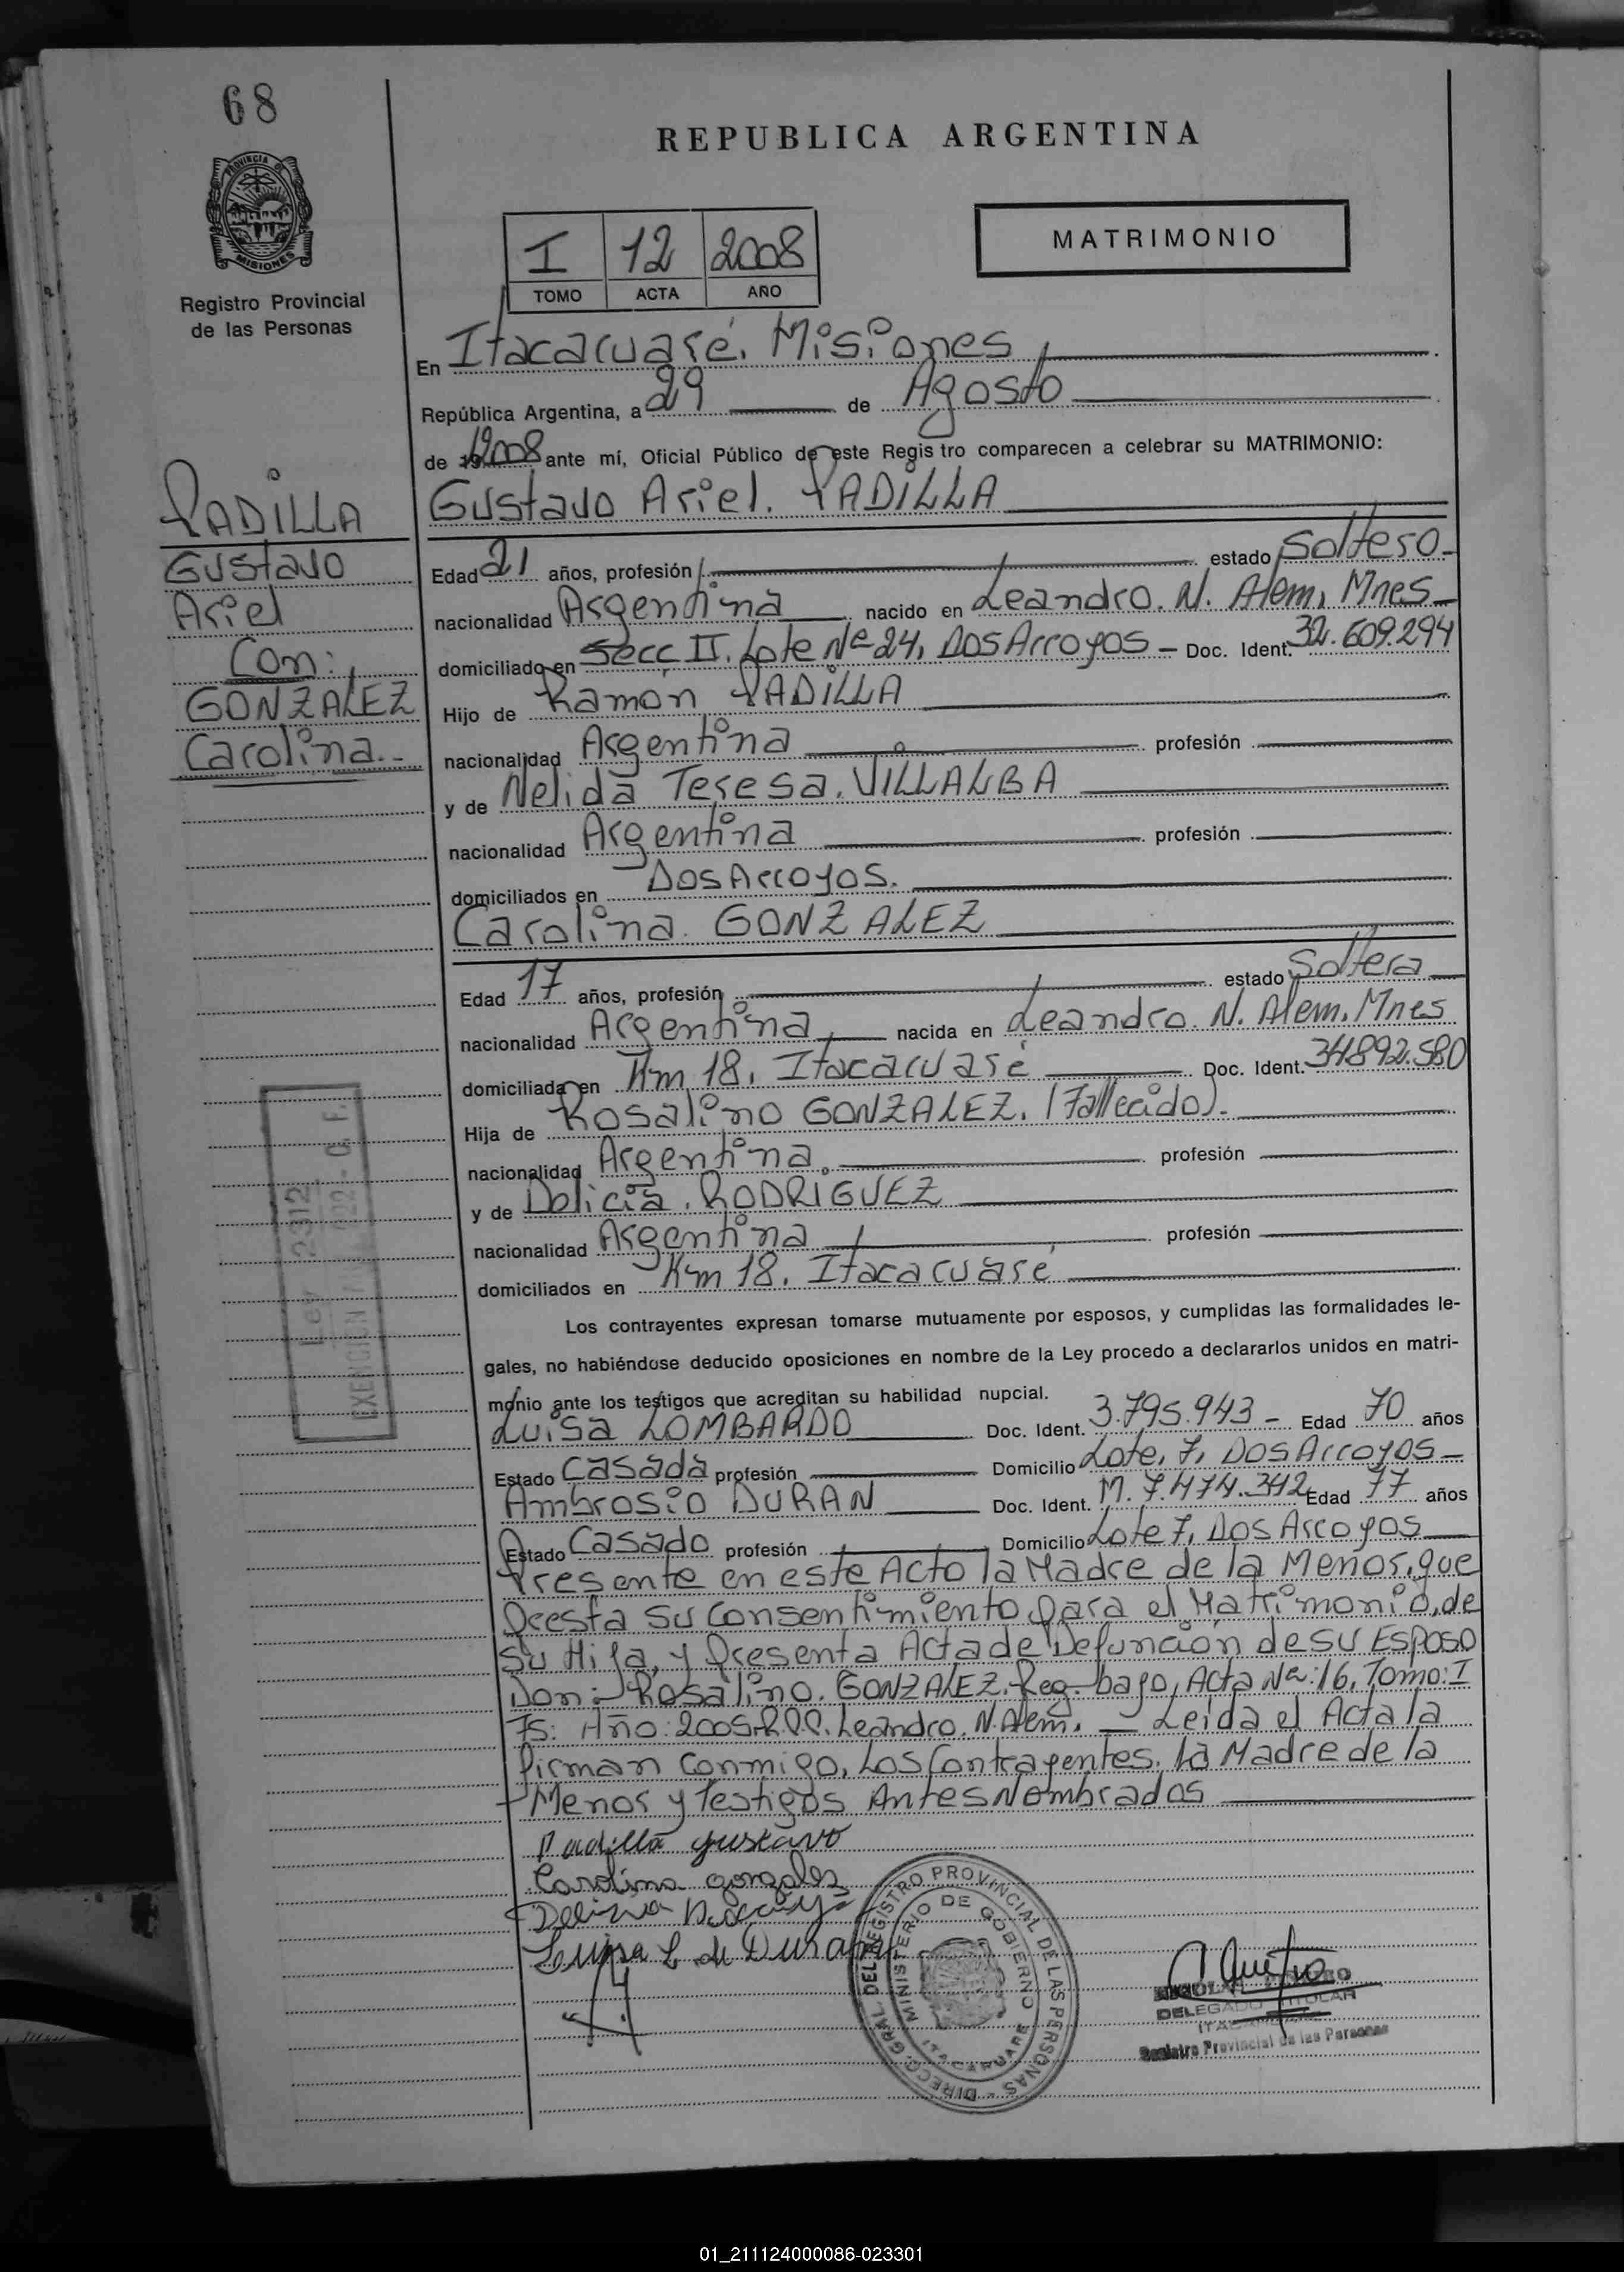 68
REPUBLICA ARGENTINA
PROVINCIA DE
MISIONES
Registro Provincial
de las Personas
I 12 2008
TOMO ACTA AÑO
MATRIMONIO
En Itacaruaré, Misiones
República Argentina, a 29 de Agosto
de 2008 ante mí, Oficial Público de este Registro comparecen a celebrar su MATRIMONIO:
PADILLA
Gustavo
Ariel
Con:
GONZALEZ
Carolina.-
Gustavo Ariel. PADILLA
Edad 21 años, profesión estado Soltero-
nacionalidad Argentina nacido en Leandro. N. Alem, Mnes-
domiciliado en Secc II. Lote Nº 24, Dos Arroyos - Doc. Ident. 32.609.294
Hijo de Ramón PADILLA
nacionalidad Argentina profesión
y de Nelida Teresa. VILLALBA
nacionalidad Argentina profesión
domiciliados en Dos Arroyos.
Carolina. GONZALEZ
Edad 17 años, profesión estado Soltera
nacionalidad Argentina nacida en Leandro. N. Alem, Mnes
domiciliada en Km 18, Itacaruaré Doc. Ident. 34892.580
Hija de Rosalino GONZALEZ. (Fallecido).
nacionalidad Argentina. profesión
y de Delicia. RODRIGUEZ
nacionalidad Argentina profesión
domiciliados en Km 18. Itacaruaré
Ley 2312
EXENCION
Los contrayentes expresan tomarse mutuamente por esposos, y cumplidas las formalidades le-
gales, no habiéndose deducido oposiciones en nombre de la Ley procedo a declararlos unidos en matri-
monio ante los testigos que acreditan su habilidad nupcial.
Luisa LOMBARDO Doc. Ident. 3.795.943 - Edad 70 años
Estado Casada profesión Domicilio Lote, 7, Dos Arroyos -
Ambrosio DURAN Doc. Ident. M. 7.474.342 Edad 77 años
Estado Casado profesión Domicilio Lote 7, Dos Arroyos
Presente en este Acto la Madre de la Menor, que
Presta su Consentimiento para el Matrimonio, de
Su Hija, y Presenta Acta de Defunción de su Esposo
Don:- Rosalino. GONZALEZ. Reg. bajo, Acta Nº: 16, Tomo: I
Año: 2005. Leandro. N. Alem. - Leida el Acta la
firman Conmigo, Los Contrayentes, La Madre de la
Menor y Testigos Antes Nombrados
Padilla Gustavo
Carolina gonzalez
Luisa L de Duran
DIRECC. GRAL. DEL REGISTRO PROVINCIAL DE LAS PERSONAS
MINISTERIO DE GOBIERNO
ITACARUARE
DELEGADO TITULAR
Registro Provincial de las Personas
01_211124000086-023301